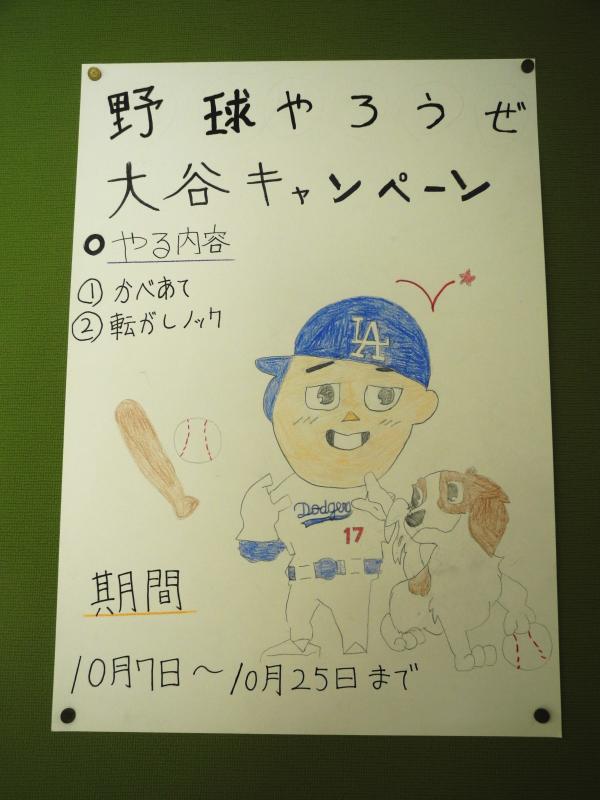 野球やろうぜ
大谷キャンペーン
○やる内容
①かべあて
②転がしノック
LA
Dodgers
17
期間
10月7日～10月25日まで